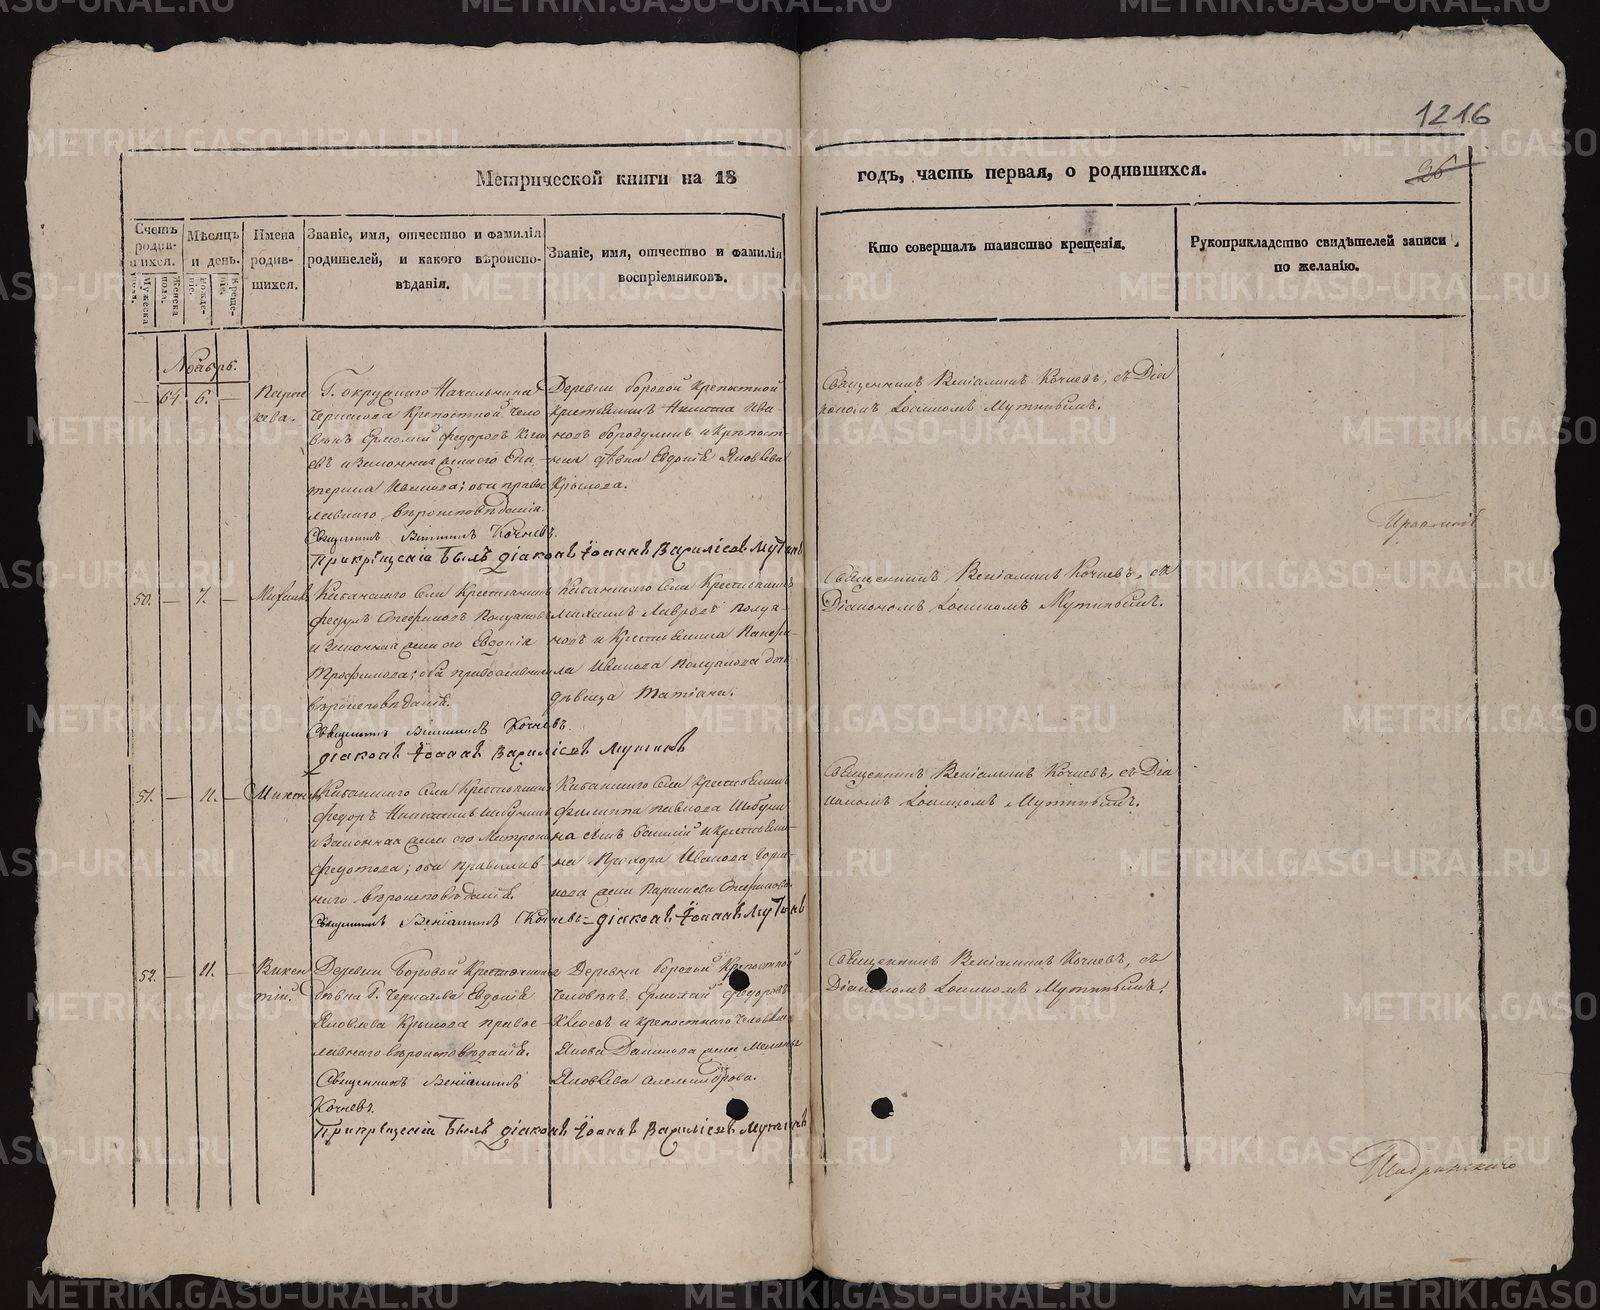 1216
26
Метрической книги на 18
годъ, часть первая, о родившихся.
Счетъ родив- шихся.
Мужеска пола.
Женска пола.
Мѣсяцъ и день.
рожде- нія.
креще- нія.
Имена родив- шихся.
Званіе, имя, отчество и фамилія родителей, и какого вѣроиспо- вѣданія.
Званіе, имя, отчество и фамилія воспріемниковъ.
Кто совершалъ таинство крещенія.
Рукоприкладство свидѣтелей записи по желанію.
Ноябрь.
— 64 6. —
Параскева.
Г. окружнаго Начальника
Чернасова Крепостной чело
вѣкъ Ермолай федоровъ
евъ и законная жена его Ека
терина Иванова; оба право
славнаго вѣроисповѣданія.
Священникъ Веніаминъ Кочневъ.
При крещеніи былъ діаконъ Іоаннъ Василіевъ Мутинъ
Деревни боровой крепостной
крестьянинъ Никита Ива
новъ бородулинъ и крепост
ная дѣвка Евдокія Яковлева
Крылова.
Священникъ Веніаминъ Кочневъ, съ Діа
кономъ Іоанномъ Мутинымъ.
50. — 7. —
Михаилъ
Кабанскаго Села Крестьянинъ
федулъ Стефановъ Полуяновъ
и законная жена его Евдокія
Трофимова; оба православнаго
вѣроисповѣданія.
Священникъ Веніаминъ Кочневъ
діаконъ Іоаннъ Василіевъ Мутинъ
Кабанскаго Села Крестьянинъ
Михаилъ Лавровъ Полуя-
новъ и Крестьянина Панфи-
ла Иванова Полуянова дочь
дѣвица Татіана.
Священникъ Веніаминъ Кочневъ, съ
Діакономъ Іоанномъ Мутинымъ.
51. — 11. —
Кабанскаго Села Крестьянинъ
федоръ
и законная жена его Матрона
федотова; оба православ-
наго вѣроисповѣданія.
Священникъ Веніаминъ Кочневъ – діаконъ Іоаннъ Мутинъ
Кабанскаго Села Крестьянина
филиппа павлова
на сынъ Василій и крестьяни-
на Прохора Иванова
нова жена Параскева Стефанова.
Священникъ Веніаминъ Кочневъ, съ Діа
кономъ Іоанномъ Мутинымъ.
52. — 11. —
Викен
тій.
Деревни Боровой Крепостная
дѣвка Г. Чернасова Евдокія
Яковлева Крылова право-
славнаго вѣроисповѣданія.
Священникъ Веніаминъ
Кочневъ.
При крещеніи былъ діаконъ Іоаннъ Василіевъ Мутинъ
Деревни боровой Крепостной
человѣкъ Ермолай федоровъ
и крепостнаго человѣка
Якова Данилова жена
Яковлева Александрова.
Священникъ Веніаминъ Кочневъ, съ
Діакономъ Іоанномъ Мутинымъ.
METRIKI.GASO-URAL.RU